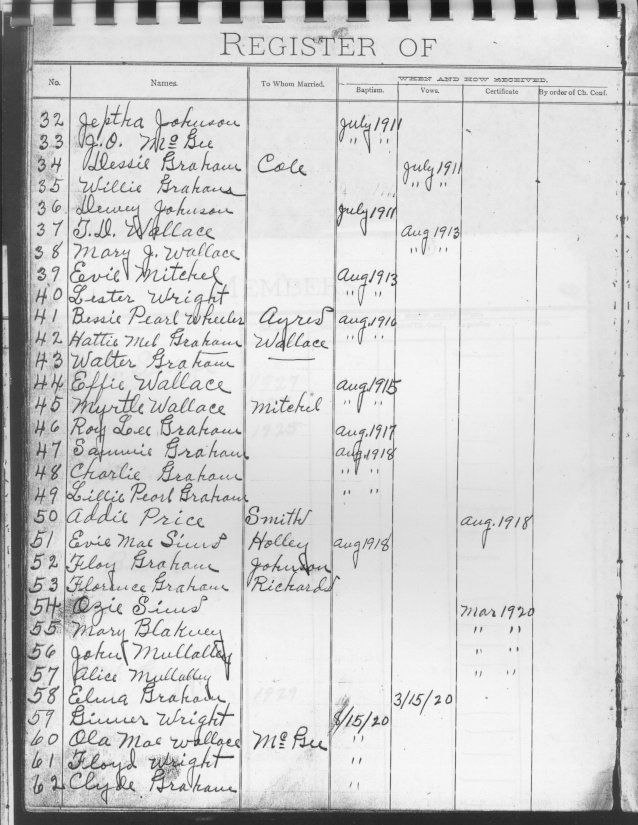 REGISTER OF
WHEN AND HOW RECEIVED.
No. Names. To Whom Married. Baptism. Vows. Certificate By order of Ch. Conf.
32 Jeptha Johnson July 1911
33 J.O. McGee " "
34 Dessie Graham Cole July 1911
35 Willie Graham " "
36 Dewey Johnson July 1911
37 T.D. Wallace Aug 1913
38 Mary J. Wallace " "
39 Evie Mitchel Aug 1913
40 Lester Wright " "
41 Bessie Pearl Wheeler Ayres Aug. 1916
42 Hattie Mel Graham Wallace " "
43 Walter Graham
44 Effie Wallace Aug. 1915
45 Myrtle Wallace Mitchil " "
46 Roy Lee Graham Aug. 1917
47 Sammie Graham Aug. 1918
48 Charlie Graham " "
49 Lillie Pearl Graham " "
50 Addie Price Smith Aug. 1918
51 Evie Mae Sims Holley Aug 1918
52 Floy Graham Johnson
53 Florence Graham Richards
54 Ozie Sims Mar 1920
55 Mary Blakney " "
56 John Mullalley " "
57 Alice Mullalley " "
58 Elma Graham 3/15/20
59 Ginner Wright 8/15/20
60 Ola Mae Wallace McGee "
61 Floyd Wright "
62 Clyde Graham "